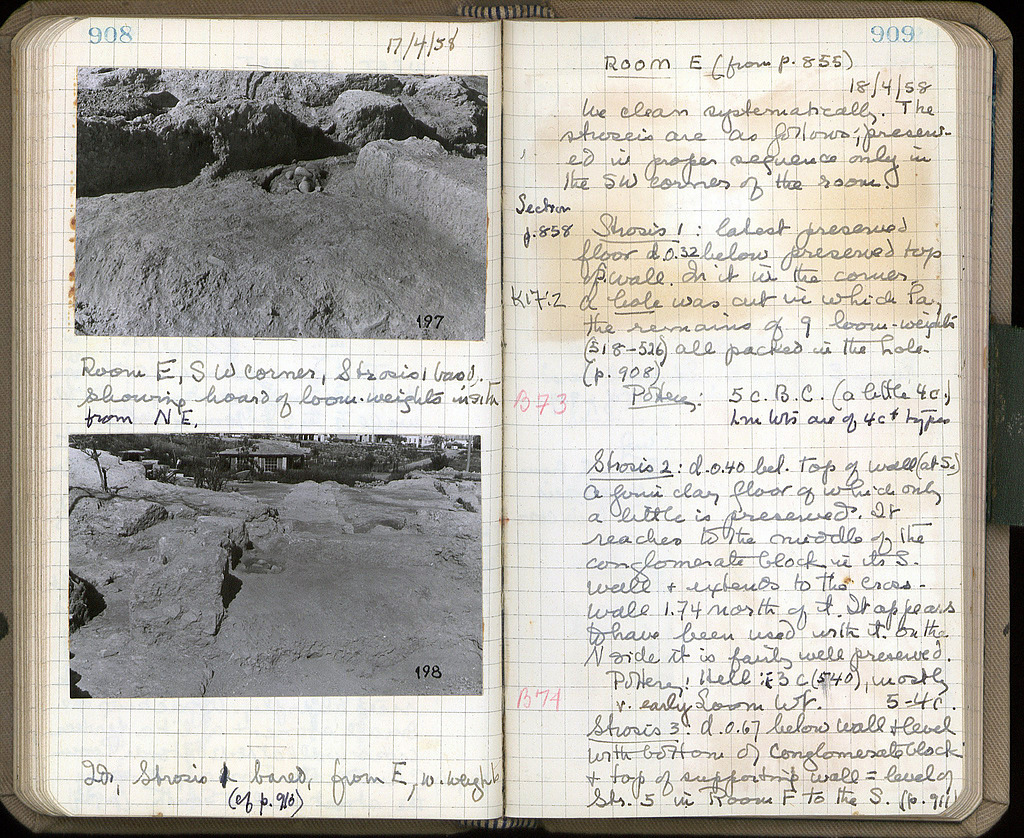 908
17/4/58
197
Room E, SW corner, Strosis 1 bared,
showing hoard of loom-weights in situ
from NE.
198
Id, Strosis 1 bared, from E, w. weights
(cf p. 910)
909
Room E (from p. 855)
18/4/58
We clean systematically. The
stroseis are as follows, preserv-
ed in proper sequence only in
the SW corner of the room.
Section
p. 858
Strosis 1: latest preserved
floor d. 0.32 below preserved top
of wall. In it in the corner,
K17:2
a hole was cut in which lay
the remains of 9 loom-weights
(518-526) all packed in the hole.
(p. 908)
B73
Pottery: 5 c. B.C. (a little 4c.)
Lm wts are of 4ct types
Strosis 2: d. 0.40 bel. top of wall (at S.)
a firm clay floor of which only
a little is preserved. It
reaches to the middle of the
conglomerate block in its S.
wall + extends to the cross-
wall 1.74 north of it. It appears
to have been used with it. On the
N side it is fairly well preserved.
Pottery: Hell: E3c (540), mostly
B74
v. early Loom Wt. 5-4c.
Strosis 3: d. 0.67 below wall + level
with bottom of conglomerate block
+ top of supporting wall = level of
Str. 5 in Room F to the S. (p. 911)